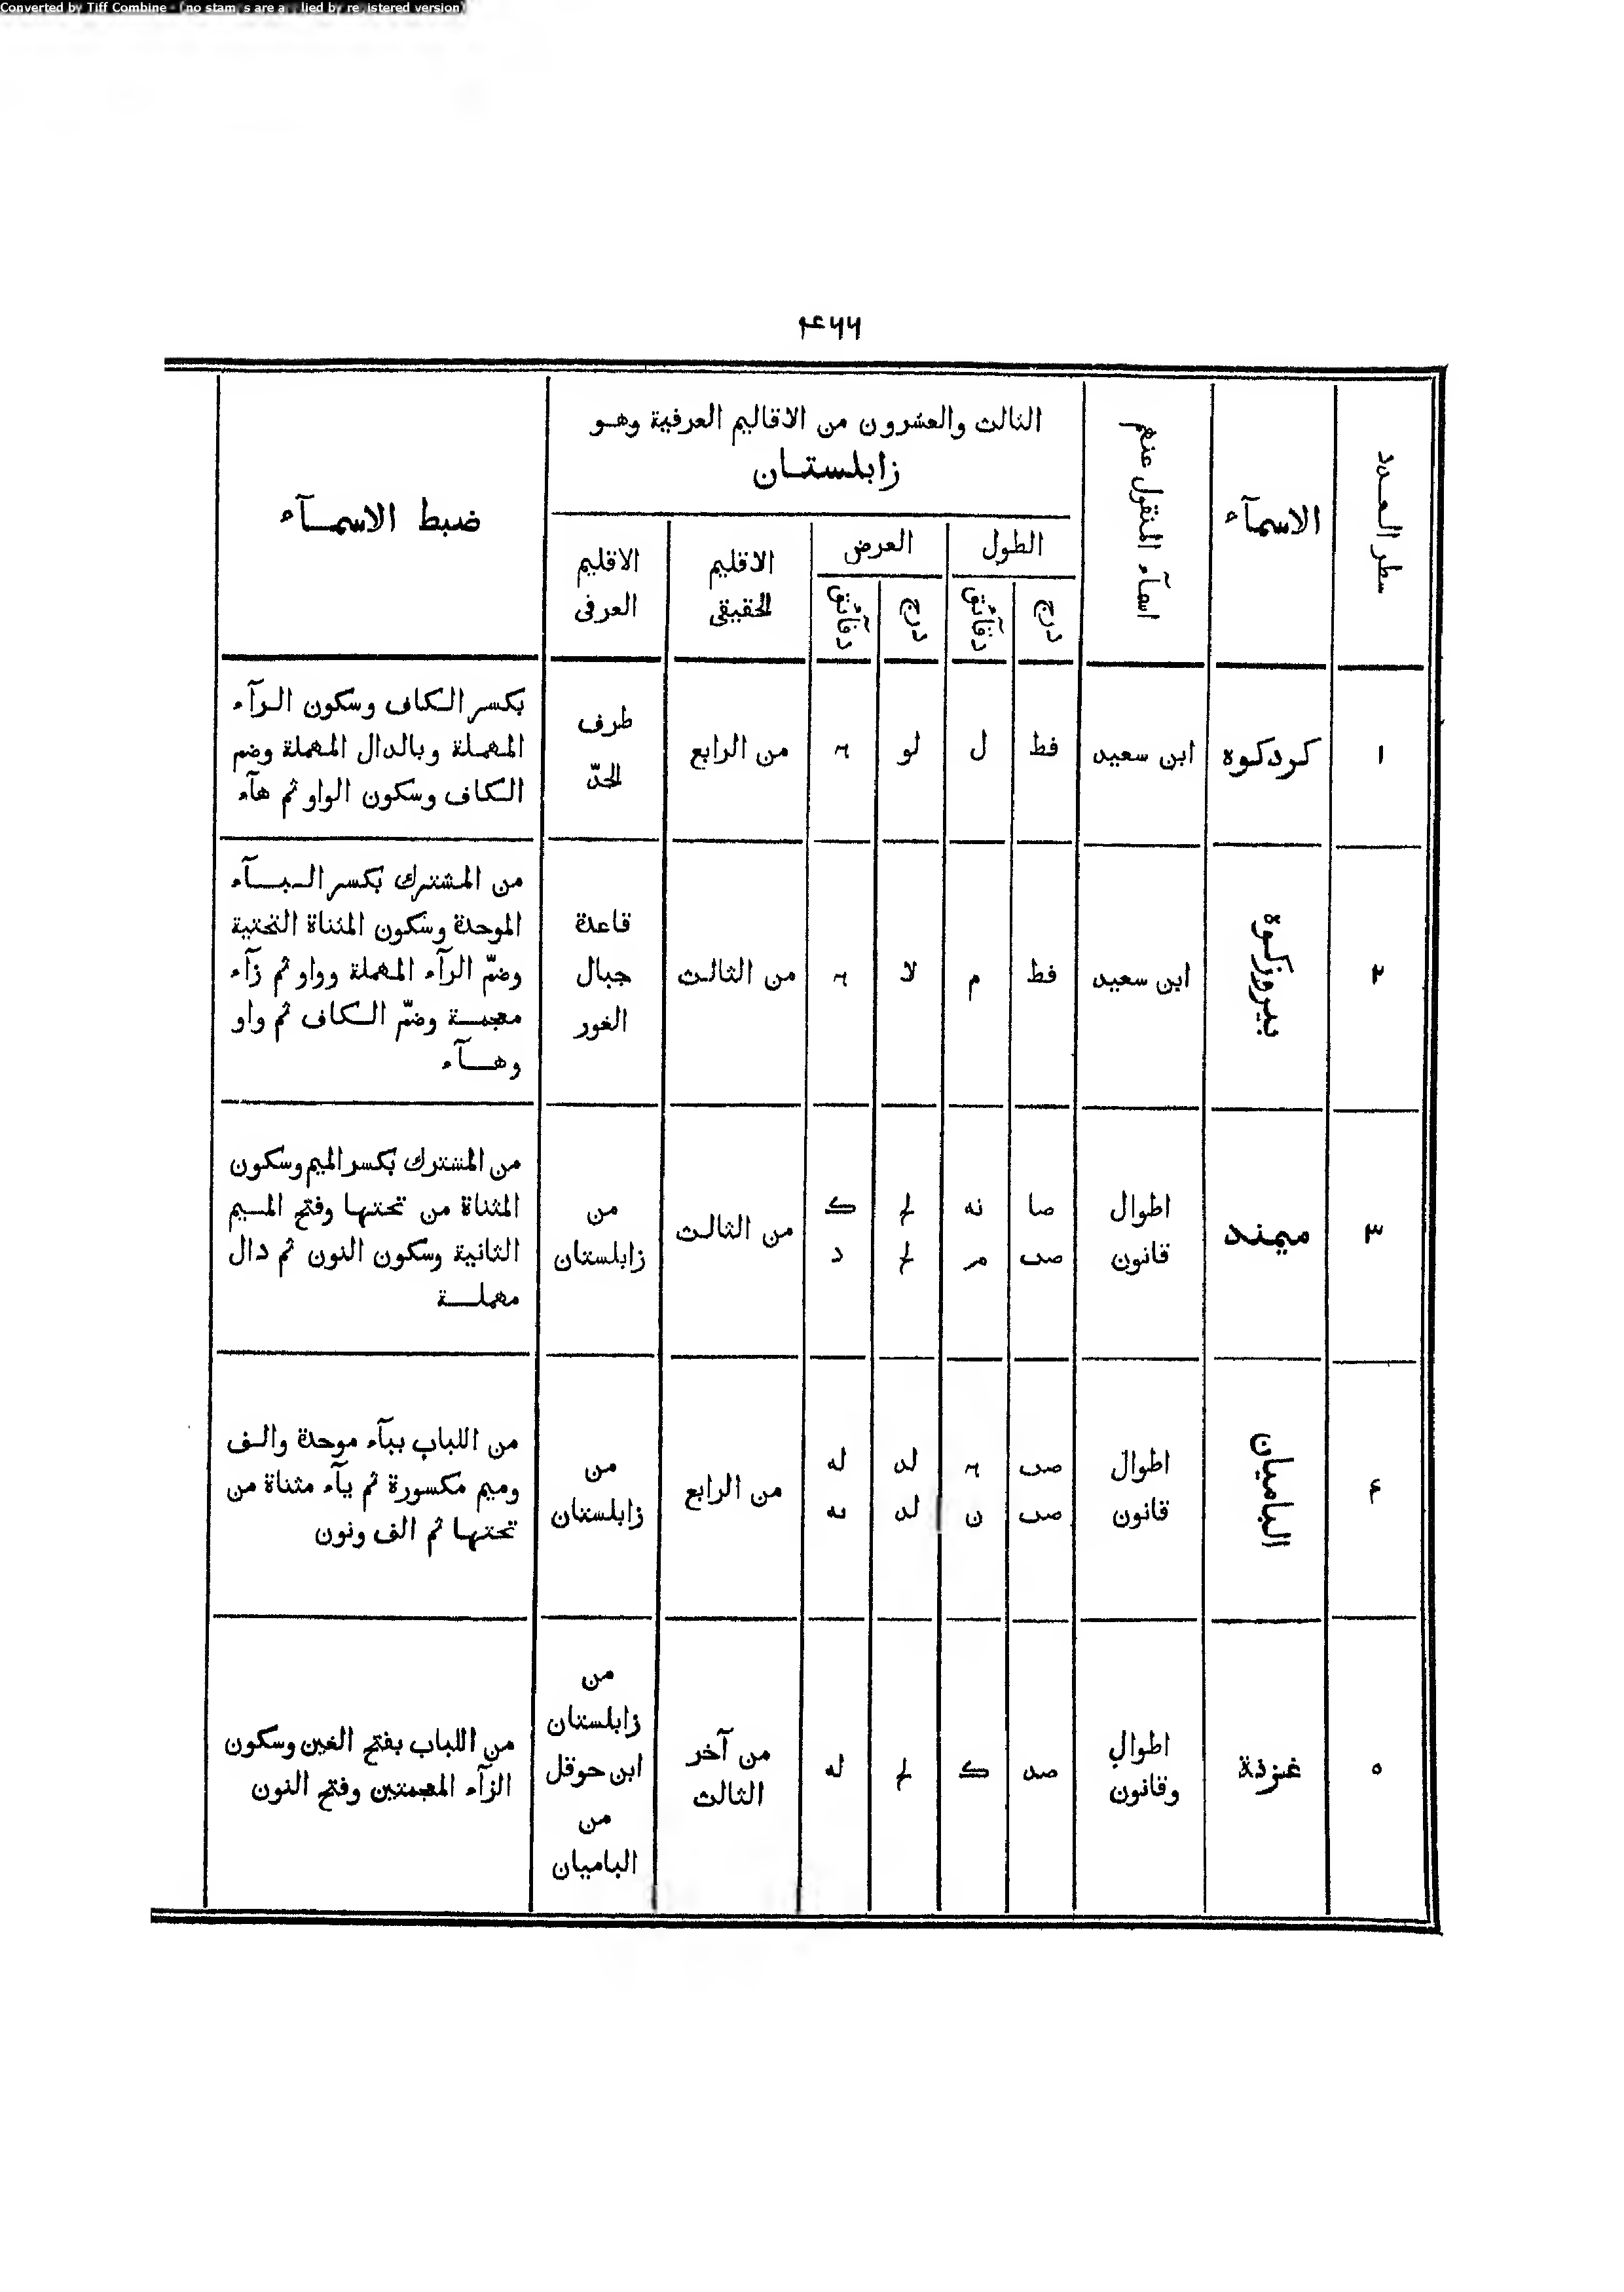 Converted by Tiff Combine - (no stamps are applied by registered version)
۴۶۶
سطر العدد
الاسمآء
اسمآء المنقول عنهم
الثالث والعشرون من الاقاليم العرفية وهو
زابلستان
الطول
العرض
درج
دقآئق
درج
دقآئق
الاقليم
الحقيقى
الاقليم
العرفى
ضبط الاسمآء
١
كردكوه
ابن سعيد
فط
ل
لو
من الرابع
طرف
الحدّ
بكسر الكاف وسكون الرآء
المهملة وبالدال المهملة وضم
الكاف وسكون الواو ثم هآء
٢
بيروزكوه
ابن سعيد
فط
م
لا
من الثالث
قاعدة
جبال
الغور
من المشترك بكسر البآء
الموحدة وسكون المثناة التحتية
وضمّ الرآء المهملة وواو ثم زآء
معجمة وضمّ الكاف ثم واو
وهآء
٣
ميمند
اطوال
قانون
صا
صب
نه
مر
لح
لح
ك
د
من الثالث
من
زابلستان
من المشترك بكسر الميم وسكون
المثناة من تحتها وفتح الميم
الثانية وسكون النون ثم دال
مهملة
۴
الباميان
اطوال
قانون
صب
صب
ن
لد
لد
له
يه
من الرابع
من
زابلستان
من اللباب ببآء موحدة والف
وميم مكسورة ثم يآء مثناة من
تحتها ثم الف ونون
٥
غزنة
اطوال
وقانون
صد
ك
لح
له
من آخر
الثالث
من
زابلستان
ابن حوقل
من
الباميان
من اللباب بفتح الغين وسكون
الزآء المعجمتين وفتح النون